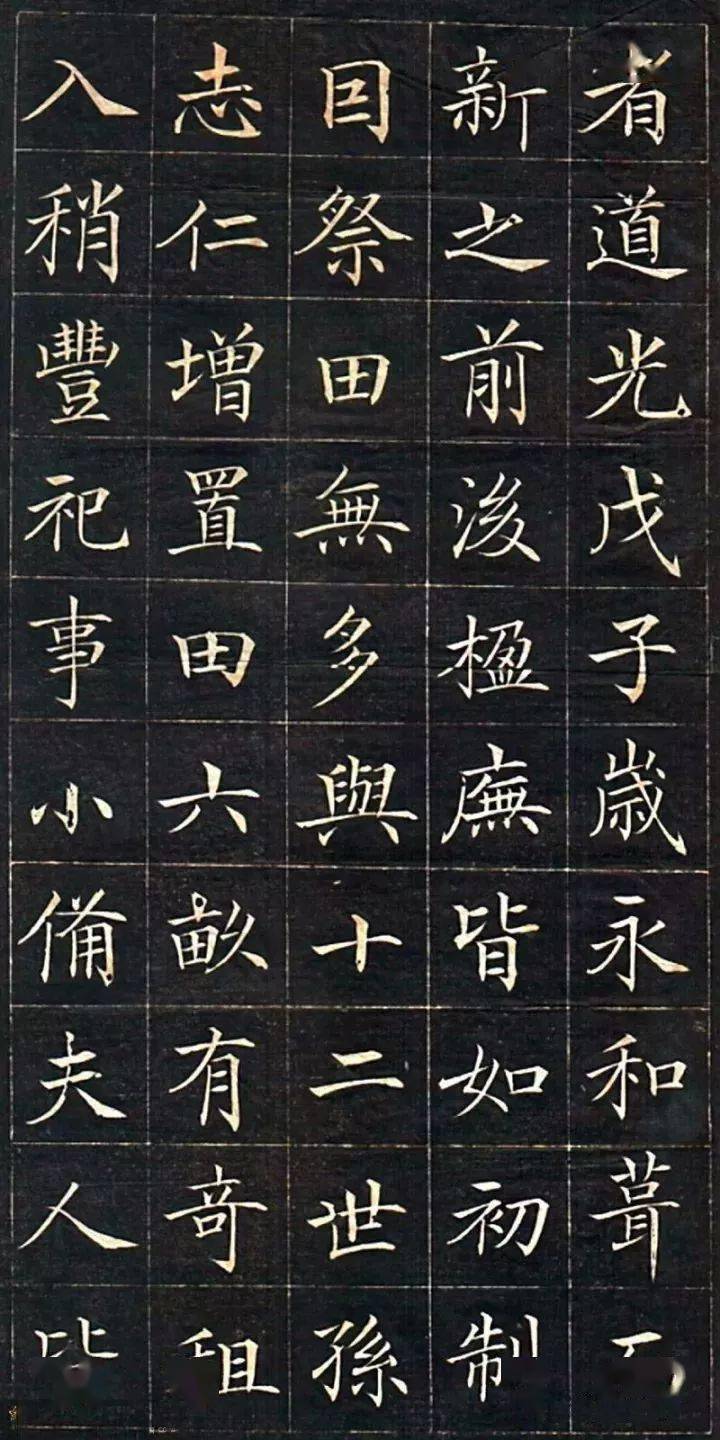 者道光戊子歲永和葺
新之前後楹廡皆如初制
囙祭田無多與十二世孫
志仁增置田六畝有奇租
入稍豐祀事小備夫人